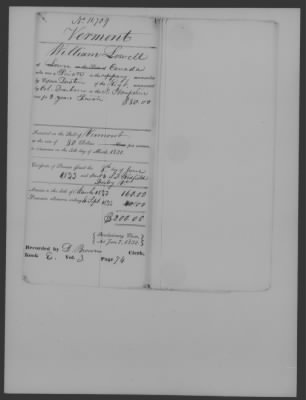 No 11709
Vermont
William Lowell
of Lower in the Canada
who was a Private in the company commanded
by Captain of the Regt. commanded
by Col. Dearborn in the N. Hampshire
line for 2 years Private $80.00
Inscribed on the Roll of Vermont
at the rate of 80 Dollars per annum,
to commence on the 4th day of March, 1831.
Certificate of Pension issued the 8th day of June
1833
Arrears to the 4th of March 1833 160.00
Semi-anl. allowance ending 4 Sept 1833 40.00
$200.00
Revolutionary Claim,
Act June 7, 1832.
Recorded by D. Brown Clerk,
Book E. Vol. 3 Page 74